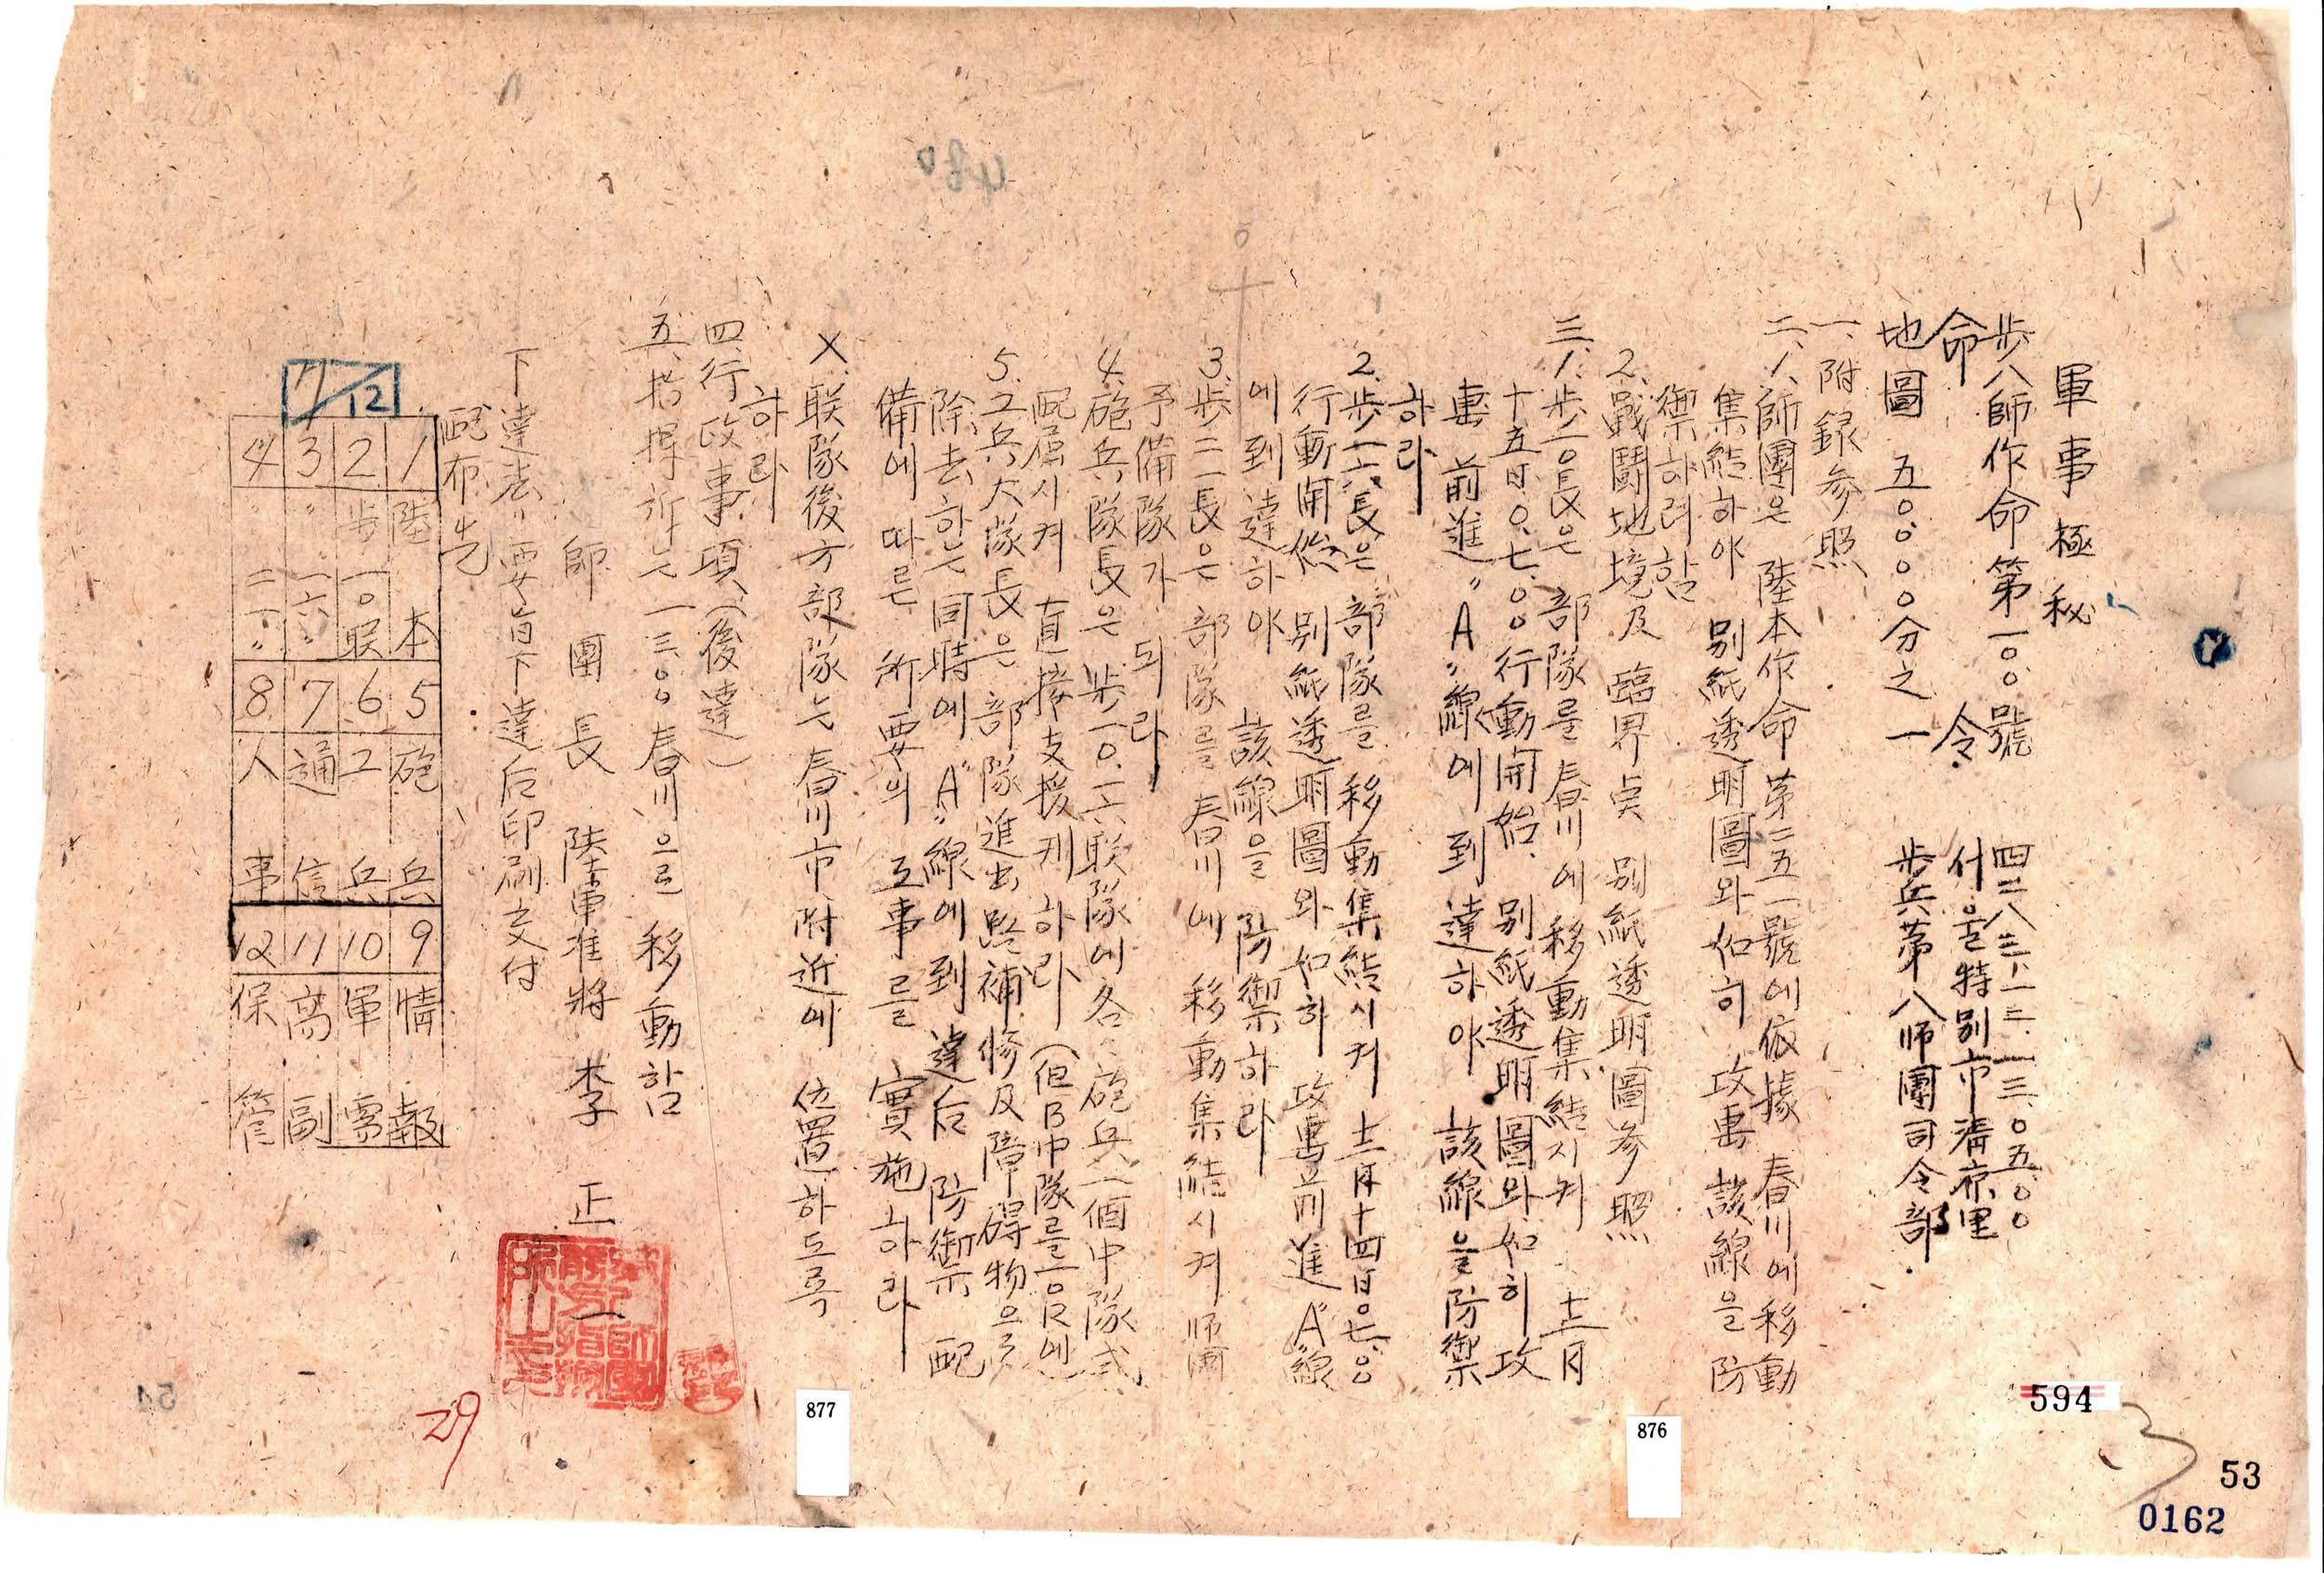 軍事極秘
步八師作命第一〇〇號
命令
地圖 五〇.〇〇〇分之一
四二八三.一二.一三.〇五〇〇
서울特別市淸凉里
步兵第八師團司令部
一、附錄參照
二、1、師團은 陸本作命 第二五一號에 依據 春川에 移動
集結하야 別紙透明圖와 如히 攻勇 該線을 防
禦하려함
2、戰鬪地境及 臨界点 別紙透明圖參照
三、1、步一〇長은 部隊를 春川에 移動集結시켜 十二月
十五日〇七〇〇行動開始 別紙透明圖와如히 攻
勇 前進 "A"線에 到達하야 該線을防禦
하라
2、步一六長은 部隊를 移動集結시켜 十二月十四日〇七〇〇
行動開始 別紙透明圖와如히 攻勇前進 "A"線
에 到達하야 該線을 防禦하라
3、步二一長은 部隊를 春川에 移動集結시켜 師團
予備隊가 되라
4、砲兵隊長은 步一〇.一六联隊에各 砲兵一個中隊式
配屬시켜 直接支援케하라 (但B中隊를一〇R에)
5、工兵大隊長은 部隊進出路補修及障碍物으로
除去한는 同時에 "A"線에到達后 防禦 配
備에 따른 所要의 工事를 實施하라
X、联隊後方部隊는 春川市附近에 位置하도록
하라
四、行政事項(後達)
五、指揮所는 一三〇〇春川으로 移動함
師團長 陸軍准將 李正一
下達法 要旨下達后印刷交付
配布先
1 陸本 5 砲兵 9 情報
2 步一〇联 6 工兵 10 軍需
3 〃一六〃 7 通信 11 高副
4 〃二一〃 8 人事 12 保管
/12
29
877
876
594
3
53
0162